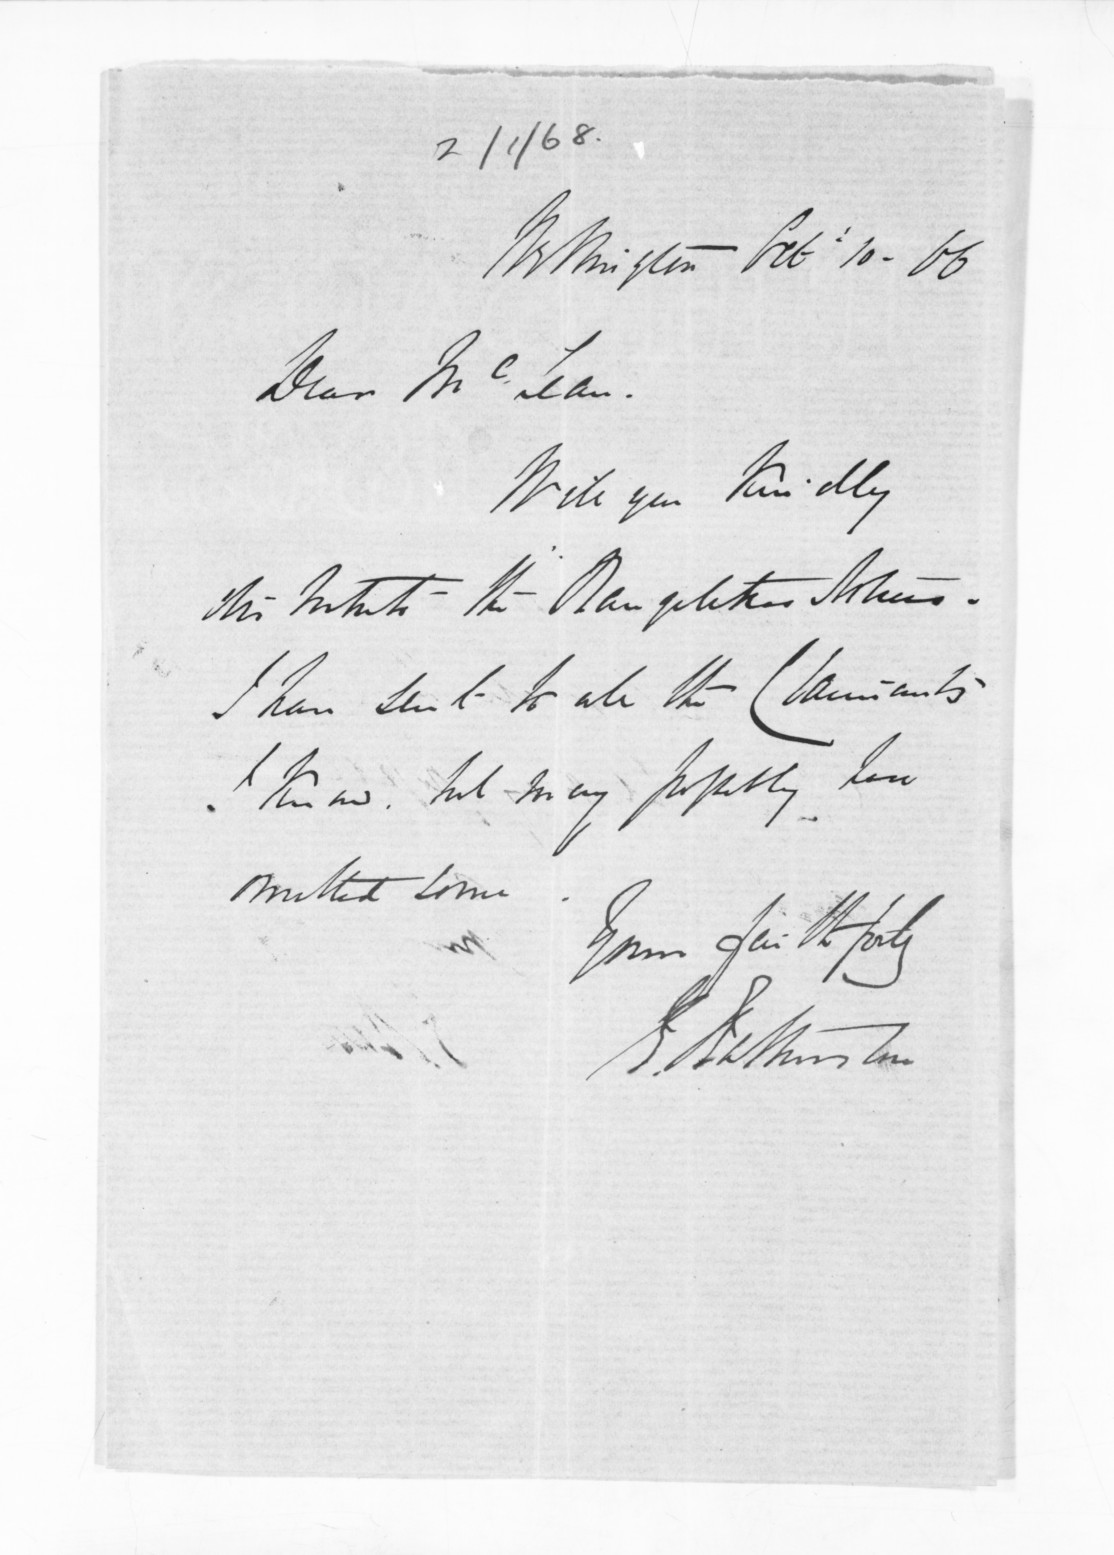 2/1/68.
Wellington Oct 10 - 66
Dear McLean.
Will you kindly
distribute the Rangitikei Notices.
I have sent to all the Claimants
I know. but may possibly have
omitted some.
Yours faithfully